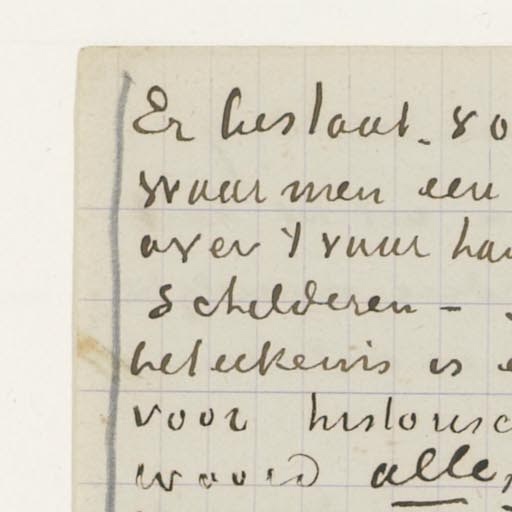 Er bestaat. vo
waar men een
over 't vuur ha
schilderen -
beteekenis is e
voor historisc
woord alles